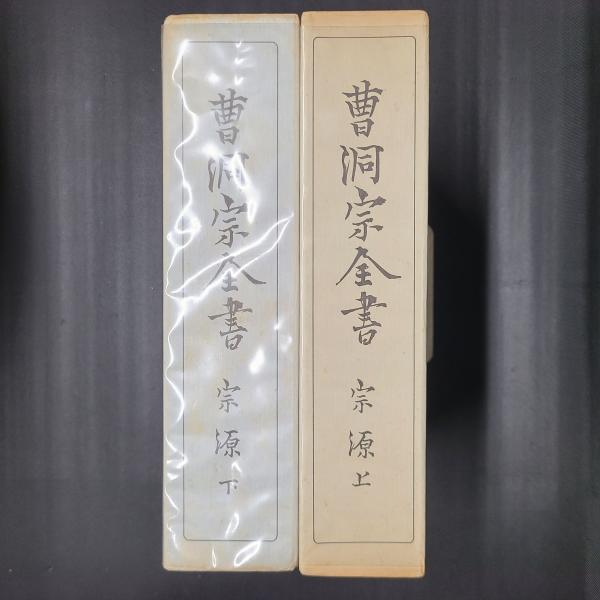 曹洞宗全書 宗源 上
曹洞宗全書 宗源 下